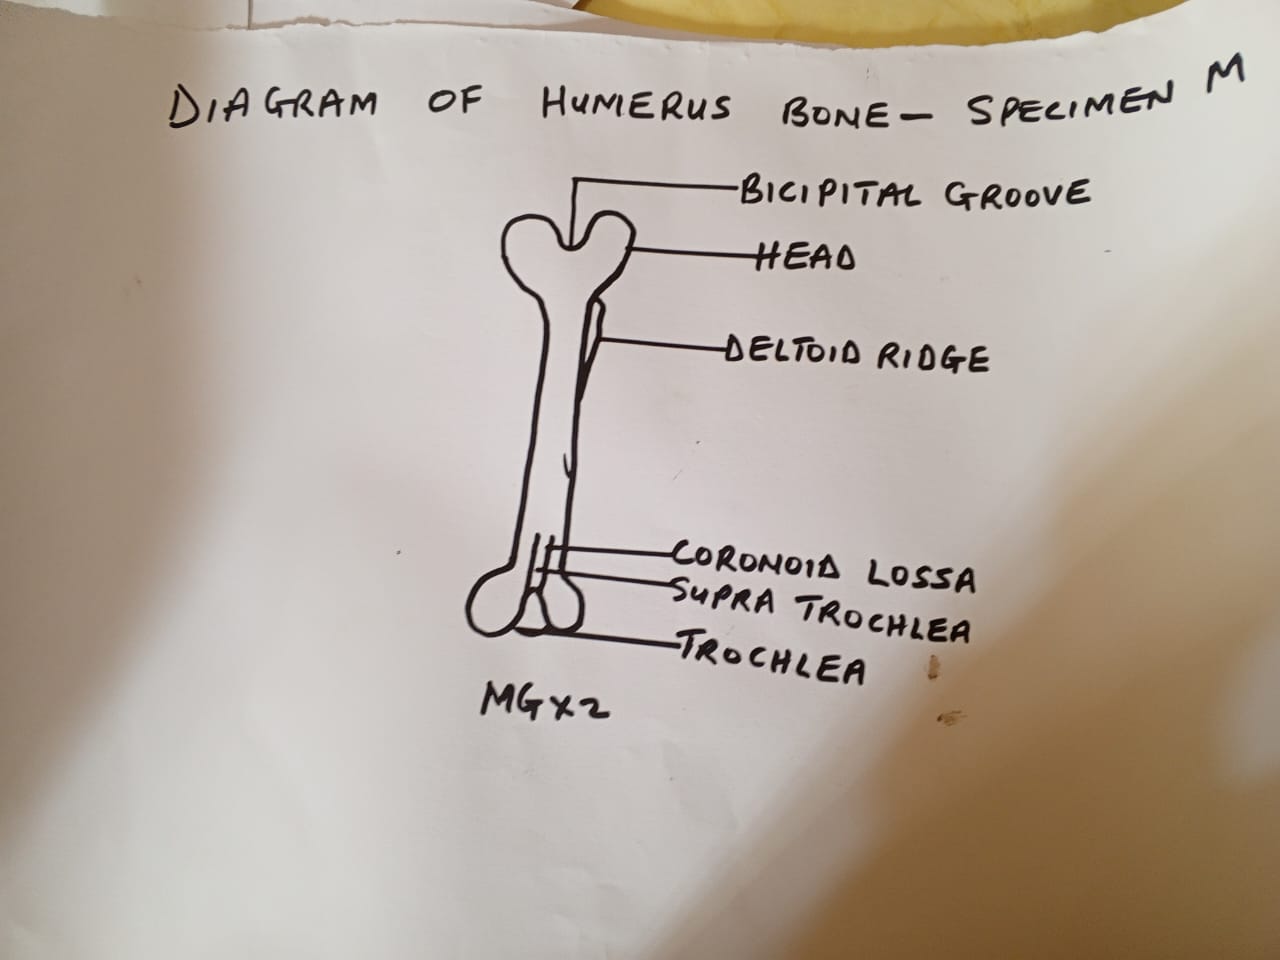 DIAGRAM OF HUMERUS BONE - SPECIMEN M
BICIPITAL GROOVE
HEAD
DELTOID RIDGE
CORONOID LOSSA
SUPRA TROCHLEA
TROCHLEA
MGX2